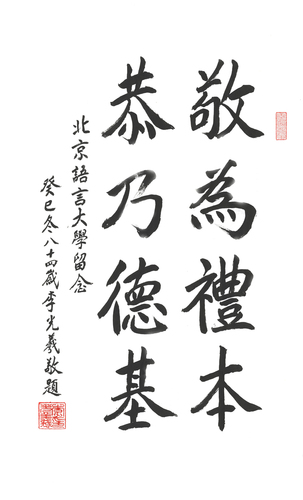 敬為禮本
恭乃德基
北京語言大學留念
癸巳冬八十四歲李光羲敬題